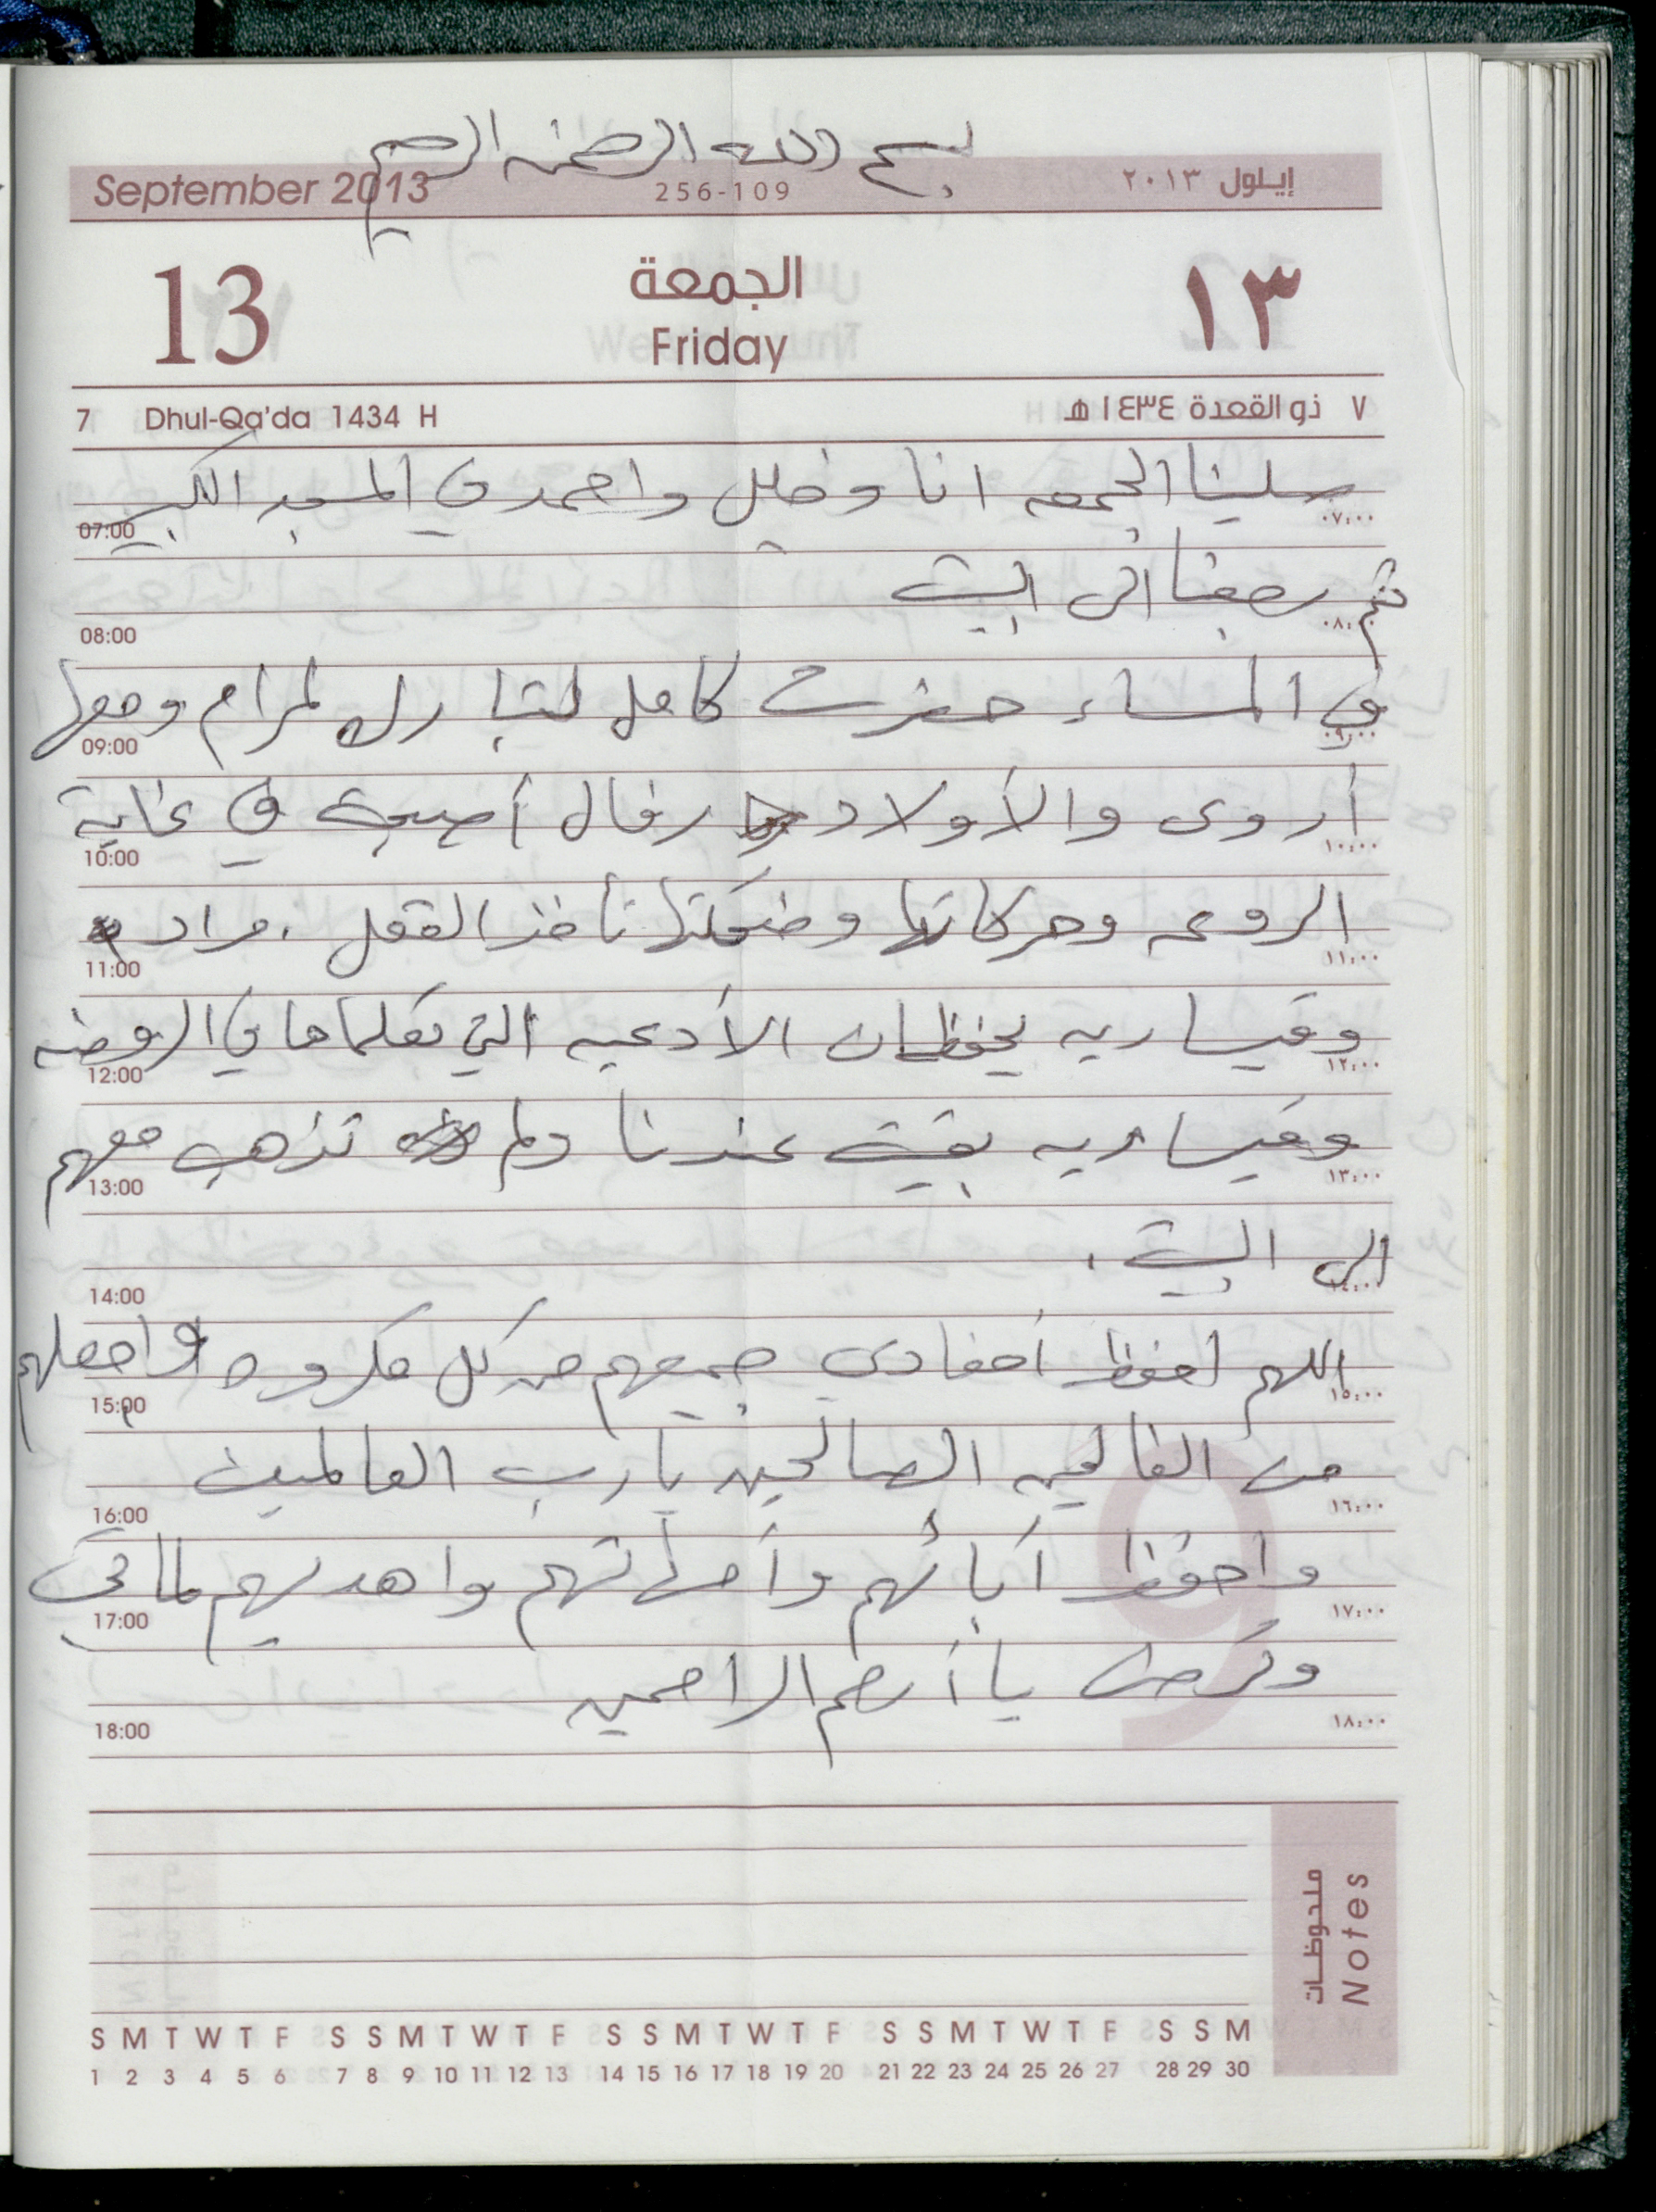 بسم الله الرحمن الرحيم
September 2013 256-109 إيلول ٢٠١٣
13 الجمعة ١٣
Friday
7 Dhul-Qa'da 1434 H ٧ ذو القعدة ١٤٣٤ هـ
صلينا الجمعه انا وخليل واحمد في المسجد الكبير
07:00 ٠٧:٠٠
ثم رجعنا الى البيت
08:00 ٠٨:٠٠
في المساء حضرت كامل لتبارك لمرام ومعها
09:00 ٠٩:٠٠
أروى والأولاد رفال أصبحت في غاية
10:00 ١٠:٠٠
الروعه وحركاتها وضحكتها تأخذ العقل . مراد
11:00 ١١:٠٠
وقيساريه يحفظان الأدعيه التي تعلماها في الروضه
12:00 ١٢:٠٠
وقيساريه بقيت عندنا ولم تذهب معهم
13:00 ١٣:٠٠
الى البيت .
14:00 ١٤:٠٠
اللهم احفظ أحفادي جميعهم من كل مكروه واجعلهم
15:00 ١٥:٠٠
من الفالحين الصالحين يا رب العالمين
16:00 ١٦:٠٠
واحفظ آبائهم وأمهاتهم واهديهم لما تحب
17:00 ١٧:٠٠
وترضى يا أرحم الراحمين
18:00 ١٨:٠٠
9
ملحوظات
Notes
S M T W T F S S M T W T F S S M T W T F S S M T W T F S S M
1 2 3 4 5 6 7 8 9 10 11 12 13 14 15 16 17 18 19 20 21 22 23 24 25 26 27 28 29 30